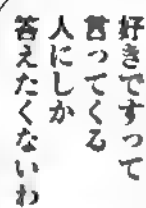 好きですって
言ってくる
人にしか
答えたくないわ